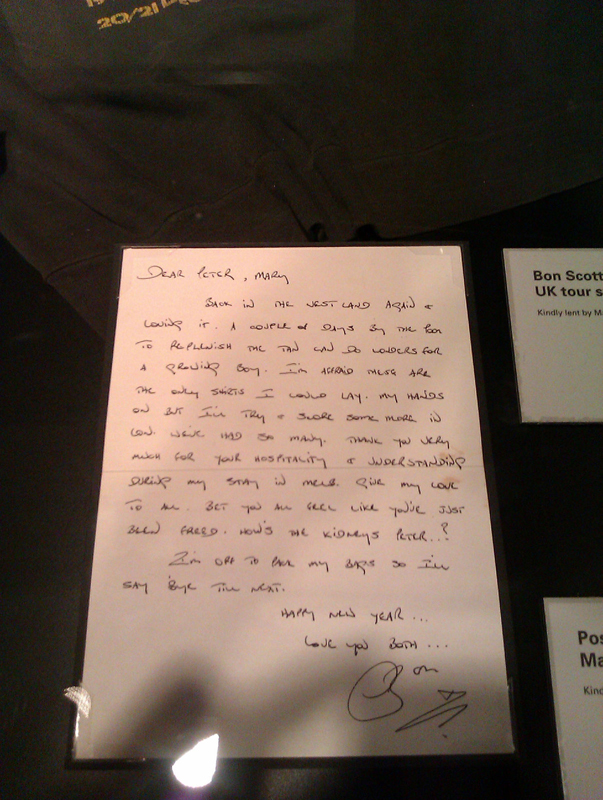 20/21
DEAR PETER, MARY
BACK IN THE WEST LAND AGAIN &
LOVING IT. A COUPLE OF DAYS BY THE POOL
TO REPLENISH THE TAN CAN DO WONDERS FOR
A GROWING BOY. I'M AFRAID THESE ARE
THE ONLY SHIRTS I COULD LAY. MY HANDS
ON BUT I'LL TRY & SCORE SOME MORE IN
LON. WE'VE HAD SO MANY. THANK YOU VERY
MUCH FOR YOUR HOSPITALITY & UNDERSTANDING
DURING MY STAY IN MELB. GIVE MY LOVE
TO ALL. BET YOU ALL FEEL LIKE YOU'VE JUST
BEEN FREED. HOW'S THE KIDNEYS PETER..?
I'M OFF TO PACK MY BAGS SO I'LL
SAY 'BYE TILL NEXT.
HAPPY NEW YEAR...
LOVE YOU BOTH...
Bon
Bon Scott
UK tour s
Kindly lent by M
Pos
Ma
Kind